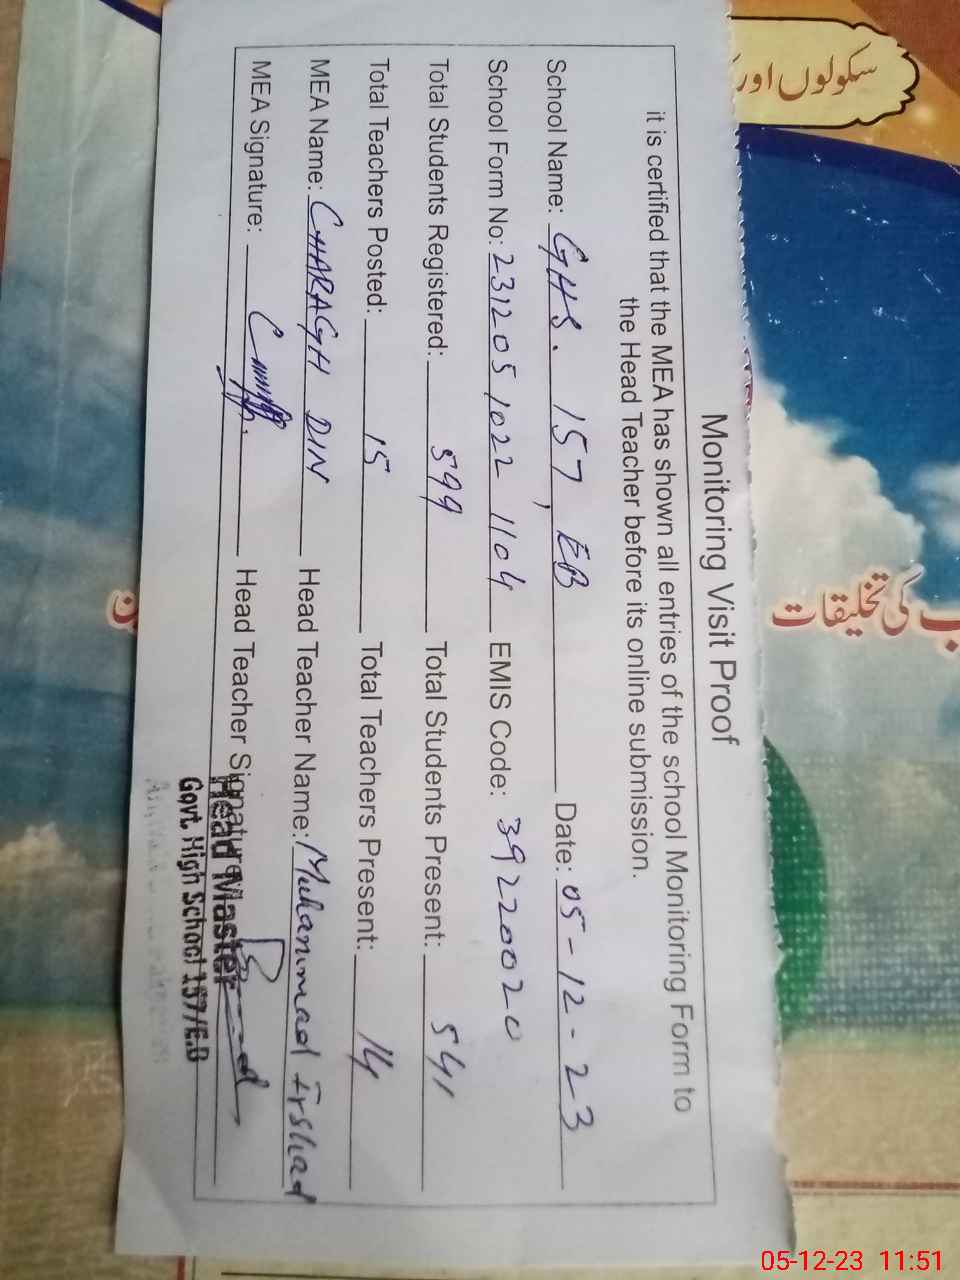 Monitoring Visit Proof
it is certified that the MEA has shown all entries of the school Monitoring Form to
the Head Teacher before its online submission.
School Name: GHS. 157, EB Date: 05-12-23
School Form No: 231205 1022 1104 EMIS Code: 39220020
Total Students Registered: 599 Total Students Present: 541
Total Teachers Posted: 15 Total Teachers Present: 14
MEA Name: CHARAGH DIN Head Teacher Name: Muhammad Irshad
MEA Signature: Head Teacher Signature:
Head Master
Govt. High School 157/E.B
سکولوں اور
ب کی تخلیقات
05-12-23 11:51